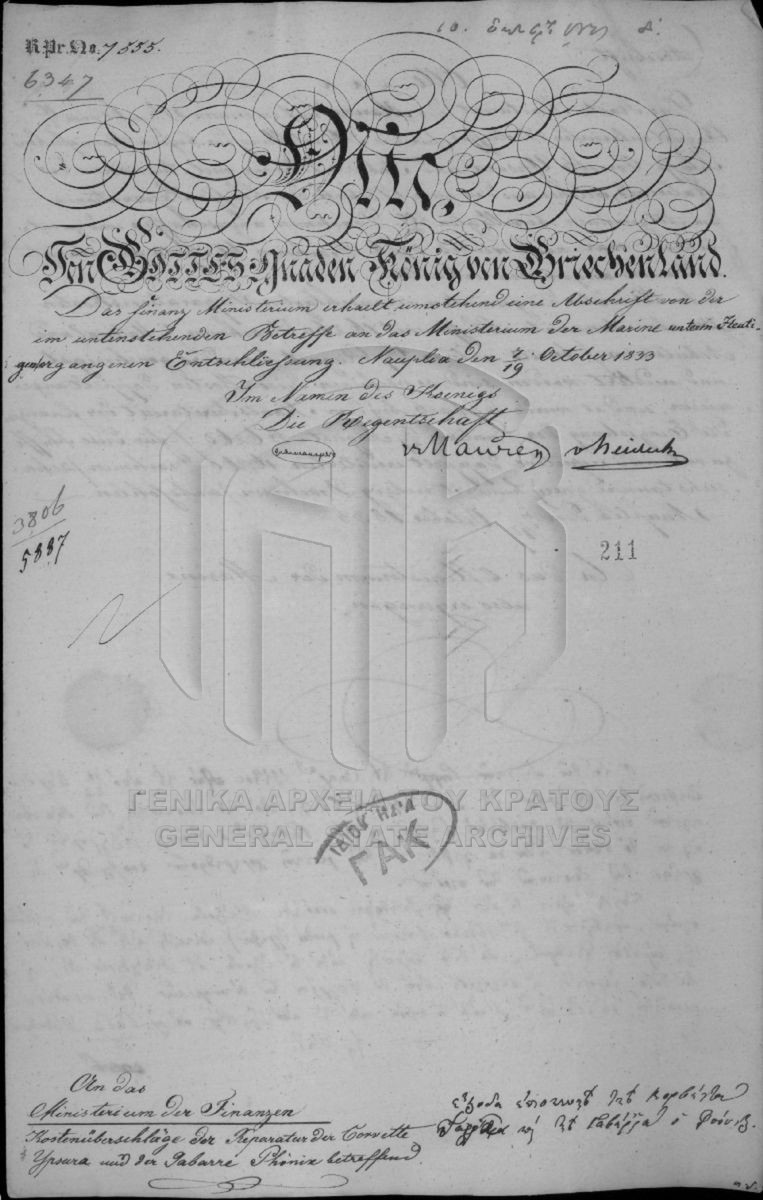 R.Pr.No. 7555.
6347
10.
OTTO,
Von GOTTES Gnaden König von Griechenland.
Das finanz Ministerium erhaelt umstehend eine Abschrift von der
im untenstehenden Betreffe an das Ministerium der Marine unterm Heuti-
gen ergangenen Entschliessung. Nauplia den 7/19 October 1833
Im Namen des Koenigs
Die Regentschaft
v Maurer v Heideck
3806
5887
211
ΓΕΝΙΚΑ ΑΡΧΕΙΑ ΤΟΥ ΚΡΑΤΟΥΣ
GENERAL STATE ARCHIVES
ΓΑΚ
An das
Ministerium der Finanzen
Kostenüberschläge der Reparatur der Corvette
Ypsara und der Gabarre Phönix betreffend
ἔξοδα ἐπισκευῆς τῆς κορβέττας
καὶ τῆς Γαβάρρας ὁ Φοίνιξ.